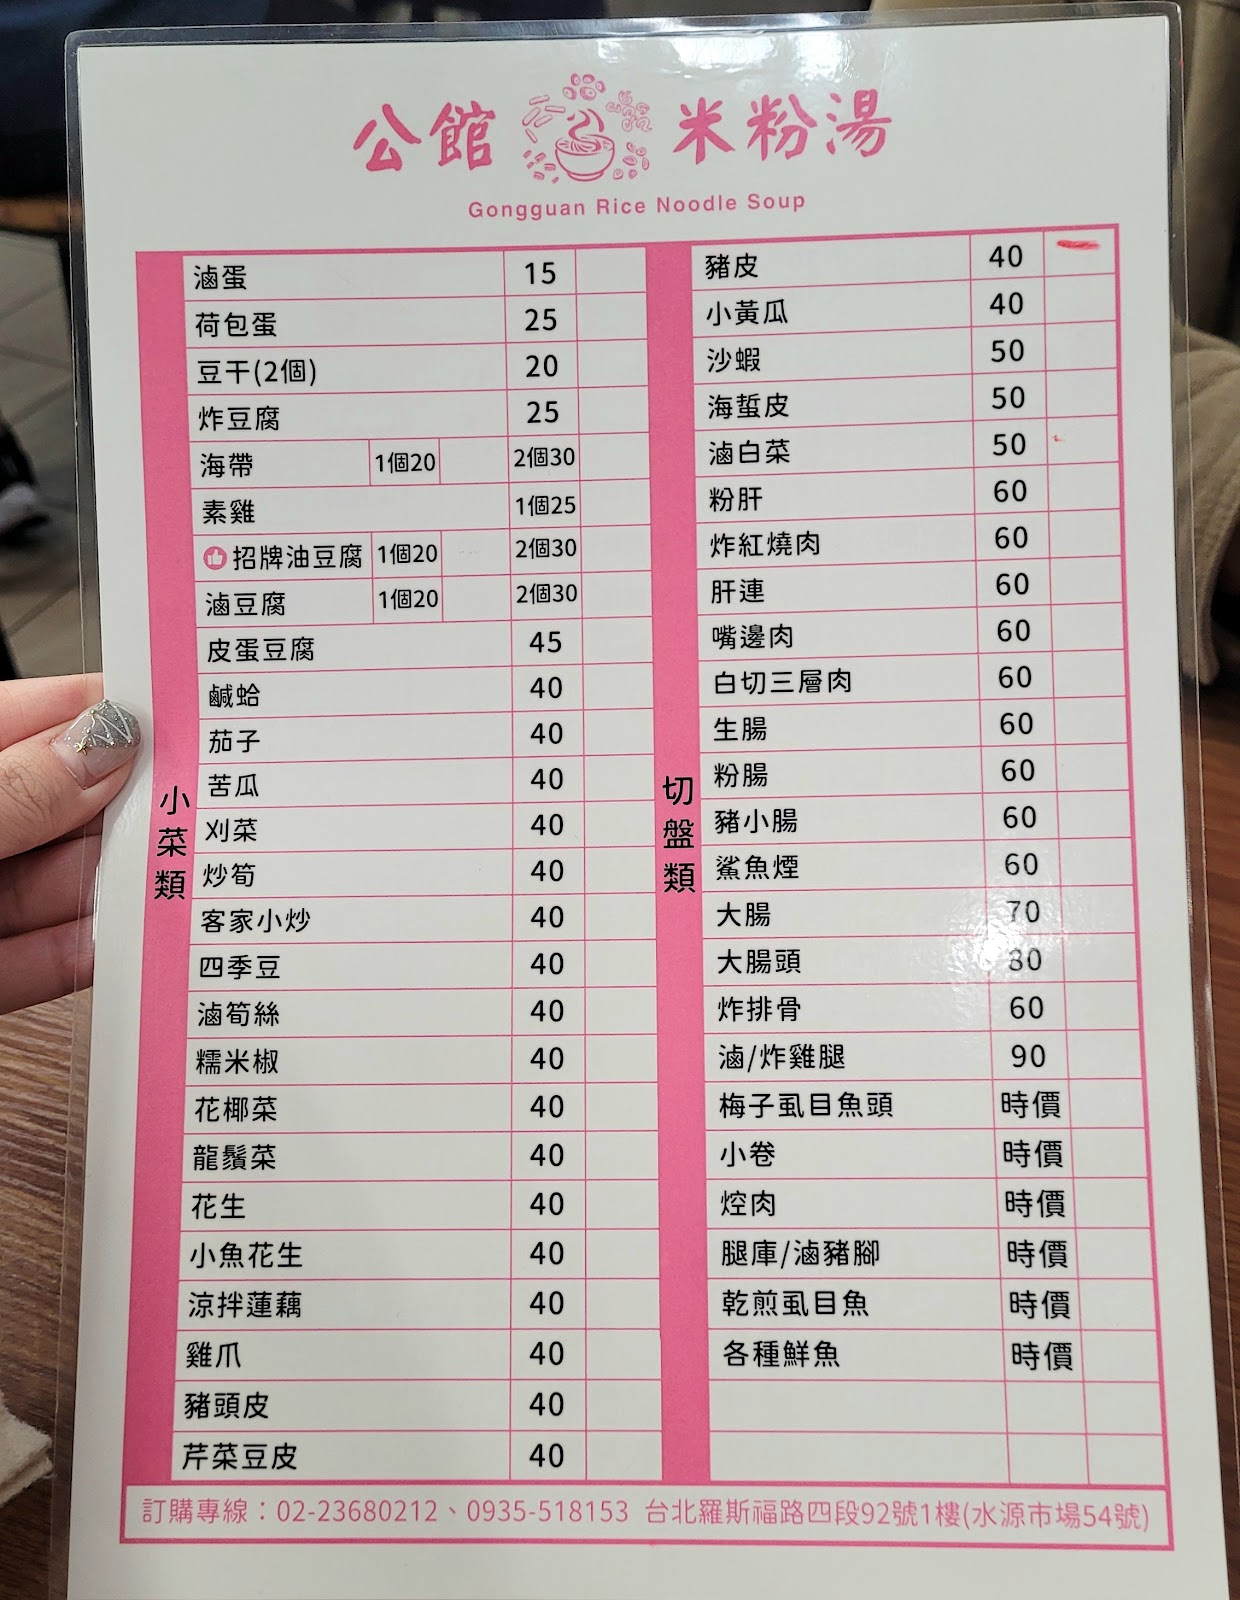 公館 米粉湯
Gongguan Rice Noodle Soup
小菜類
滷蛋 15
荷包蛋 25
豆干(2個) 20
炸豆腐 25
海帶 1個20 2個30
素雞 1個25
招牌油豆腐 1個20 2個30
滷豆腐 1個20 2個30
皮蛋豆腐 45
鹹蛤 40
茄子 40
苦瓜 40
刈菜 40
炒筍 40
客家小炒 40
四季豆 40
滷筍絲 40
糯米椒 40
花椰菜 40
龍鬚菜 40
花生 40
小魚花生 40
涼拌蓮藕 40
雞爪 40
豬頭皮 40
芹菜豆皮 40
切盤類
豬皮 40
小黃瓜 40
沙蝦 50
海蜇皮 50
滷白菜 50
粉肝 60
炸紅燒肉 60
肝連 60
嘴邊肉 60
白切三層肉 60
生腸 60
粉腸 60
豬小腸 60
鯊魚煙 60
大腸 70
大腸頭 80
炸排骨 60
滷/炸雞腿 90
梅子虱目魚頭 時價
小卷 時價
焢肉 時價
腿庫/滷豬腳 時價
乾煎虱目魚 時價
各種鮮魚 時價
訂購專線：02-23680212、0935-518153 台北羅斯福路四段92號1樓(水源市場54號)